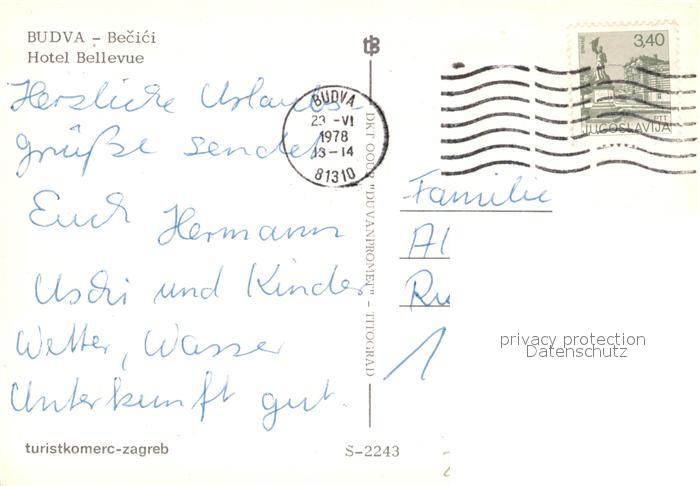 BUDVA – Bečići
Hotel Bellevue
Herzliche Urlaubs-
grüße sendet
Euch Hermann
Uschi und Kinder
Wetter, Wasser
Unterkunft gut.
turistkomerc-zagreb
S-2243
DKT OOUR "DUVANPROMET" – TITOGRAD
BUDVA
23 -VI
1978
13-14
81310
3,40
PTT
JUGOSLAVIJA
Familie
Al
Ru
1
privacy protection
Datenschutz